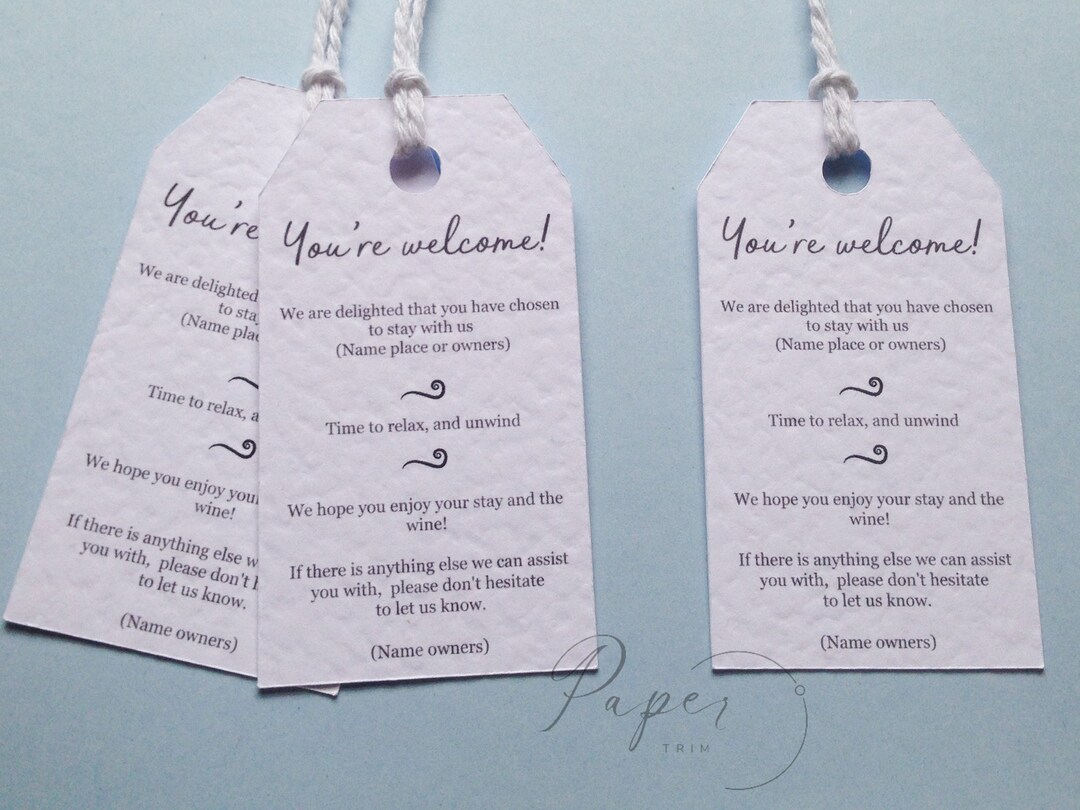 You're
We are delighted
to stay
(Name place
Time to relax, a
We hope you enjoy your
wine!
If there is anything else w
you with, please don't h
to let us know.
(Name owners)
You're welcome!
We are delighted that you have chosen
to stay with us
(Name place or owners)
Time to relax, and unwind
We hope you enjoy your stay and the
wine!
If there is anything else we can assist
you with, please don't hesitate
to let us know.
(Name owners)
You're welcome!
We are delighted that you have chosen
to stay with us
(Name place or owners)
Time to relax, and unwind
We hope you enjoy your stay and the
wine!
If there is anything else we can assist
you with, please don't hesitate
to let us know.
(Name owners)
Paper
TRIM